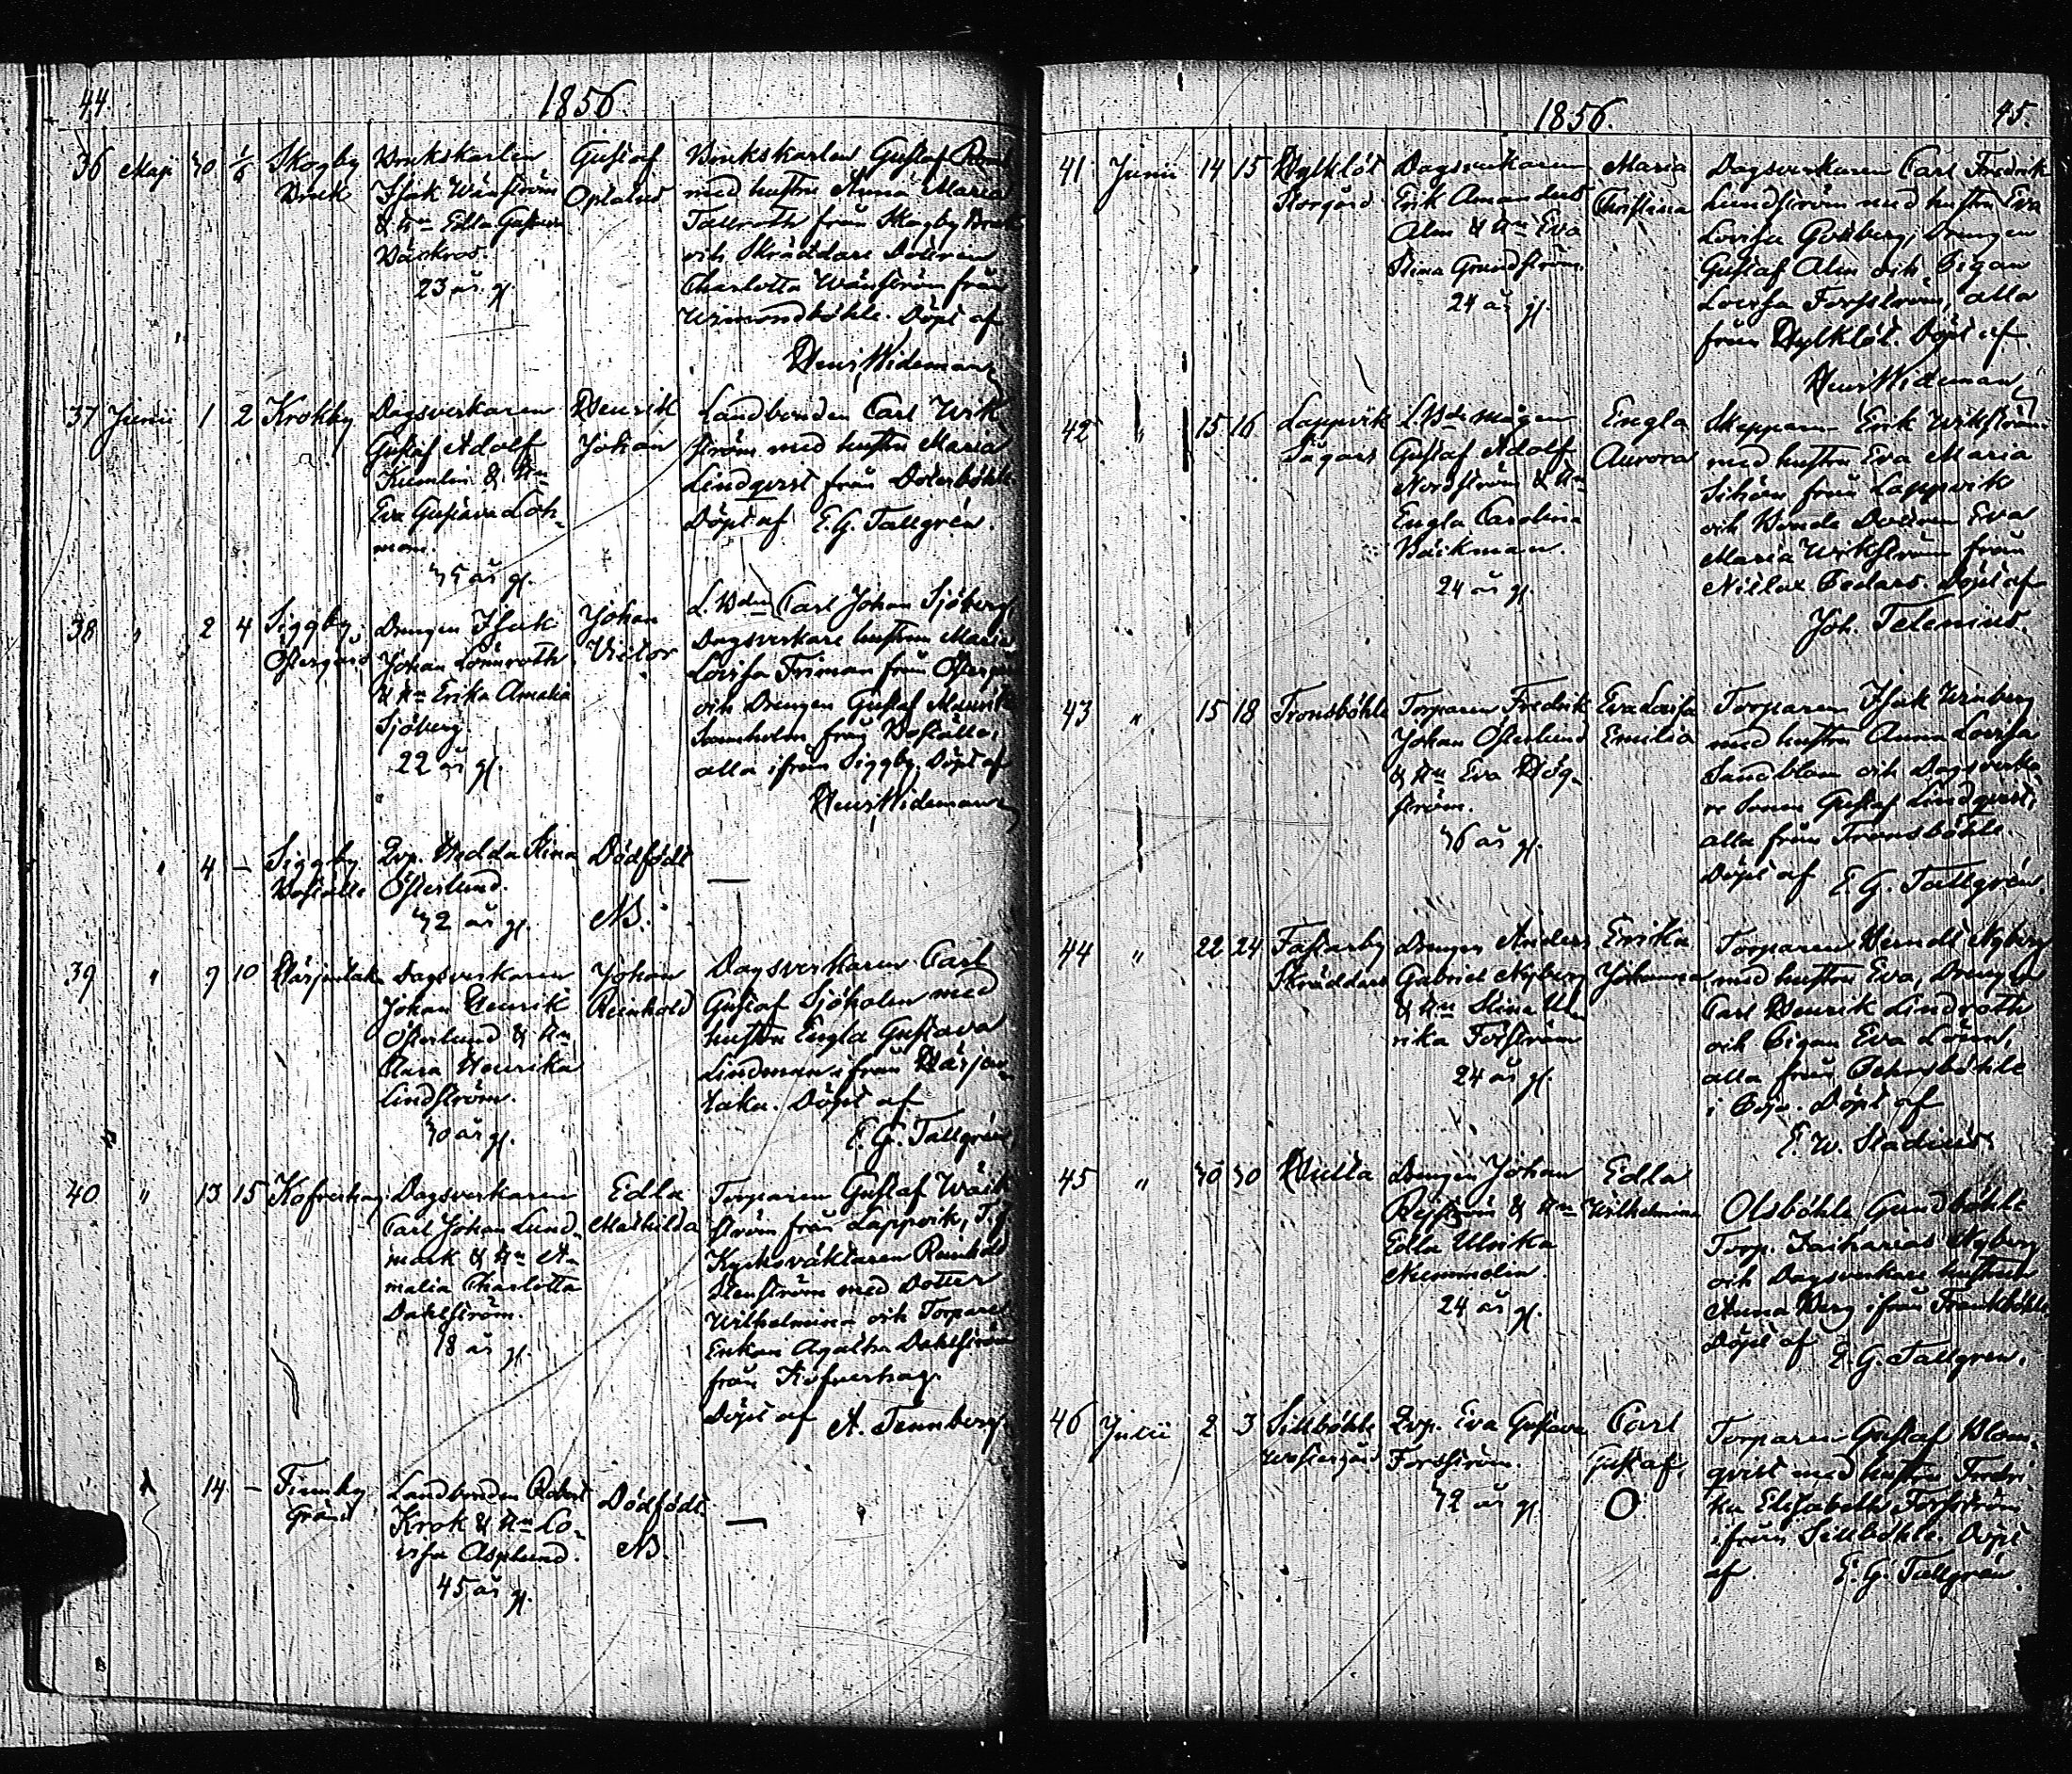 44
1856
36 Maj 30 1/6 Skogby Bruk
Brukskarlen
Isak Wänström
& Hn Edla Gustava
23 år g.
Gustaf
Brukskarlen Gustaf
med hustru Anna Maria
Tallroth från Skogby Bruk
och Skräddare Dottren
Charlotta Wänström från
Döpt af
Henr. Wideman
37 Junii 1 2 Krokby
Dagsverkaren
Gustaf Adolf
Kumlin & Hn
Eva Gustava Löh-
man.
35 år g.
Henrik
Johan
Landbonden Carl Wik-
ström med hustru Maria
Lindqvist från
Döpt af E. G. Tallgrén.
38 " 2 4 Siggby Östergård
Drengen Isak
Johan Lönnroth
& Hn Erika Amalia
Sjöberg.
22 år g.
Johan
Victor
L. Bdn Carl Johan Sjöberg,
Dagsverkare hustrun Maria
Lovisa Friman från
och Drengen Gustaf Maurits
från Boställe,
alla ifrån Siggby. Döpt af
Henr. Wideman
" 4 – Siggby Boställe
Qvp. Hedda Stina
Österlund.
32 år g.
Dödfödt
NB.
—
39 " 9 10
Dagsverkaren
Johan Henrik
Österlund & Hn
Clara Henrika
Lindström.
30 år g.
Johan
Reinhold
Dagsverkaren Carl
Gustaf Sjöholm med
hustru Engla Gustava
Lindman ifrån Härjan-
taka. Döpt af
E. G. Tallgrén
40 " 13 15 Kofverhag
Dagsverkaren
Carl Johan Lund-
mark & Hn A-
malia Charlotta
Dahlström.
18 år g.
Edla
Mathilda
Torparen Gustaf Wäck-
ström från Lappvik, T.f.
Kyrkoväktaren Reinhold
Stenström med Dotter
Wilhelmina och Torpare
Enkan Agatha Dahlström
från Kofverhag.
Döpt af A. Tennberg.
14 – Finnby Gränd
Landbonden Robert
Krok & Hn Lo-
visa Asplund.
45 år g.
Dödfödt.
NB.
—
1856.
45.
41 Junii 14 15 Storgård
Dagsverkaren
Erik Amandus
Alm & Hn Eva
Stina Grundström.
24 år g.
Maria
Christina
Dagsverkaren Carl Fredrik
Lundström med hustru Eva
Lovisa Gö
Drengen
Gustaf Alm och Pigan
Lovisa Forsström, alla
från Döpt af
Henr. Wideman
42 " 15 16 Lappvik
L. Bde mågen
Gustaf Adolf
Nordström & Hn
Engla Carolina
Bäckman.
24 år g.
Engla
Aurora
Skepparen Erik Wikström
med hustru Eva Maria
från Lappvik
och Bonde Dottren Eva
Maria Wikström från
Döpt af
Joh. Telenius.
43 " 15 18 Tronsböhle
Torparen Fredrik
Johan Österlund
& Hn Eva Hög-
ström.
36 år g.
Eva Lovisa
Emilia
Torparen Isak Winberg
med hustru Anna Lovisa
Sandblom och Dagsverka-
re Sonen Gustaf Lindqvist,
alla från Tronsböhle.
Döpt af E. G. Tallgrén.
44 " 22 24 Fastarby Skräddars
Drengen Anders
Gabriel Nyberg
& Hn Stina Ul-
rika Forström
24 år g.
Erika
Johanna
Torparen Berndt Nyberg
med hustru Eva, Drengen
Carl Henrik Lindroth
och Pigan Eva Lönn,
alla från Pehrsböhle
i Pojo. Döpt af
E. W. Stadius.
45 " 30 30 Hulta
Drengen Johan
& Hn
Edla Ulrika
24 år g.
Edla
Wilhelmina
Olsböhle Gundböhle
Torp. Zacharias Nyberg
och Dagsverkare hustrun
Anna Berg ifrån Frankböhle
Döpt af E. G. Tallgrén.
46 Julii 2 3 Sillböhle Westergård
Qvp. Eva Gustava
Forsström.
32 år g.
Carl
Gustaf.
O
Torparen Gustaf Blom-
qvist med hustru Fredri-
ka Elisabeth Forsström
ifrån Sillböhle. Döpt
af E. G. Tallgrén.